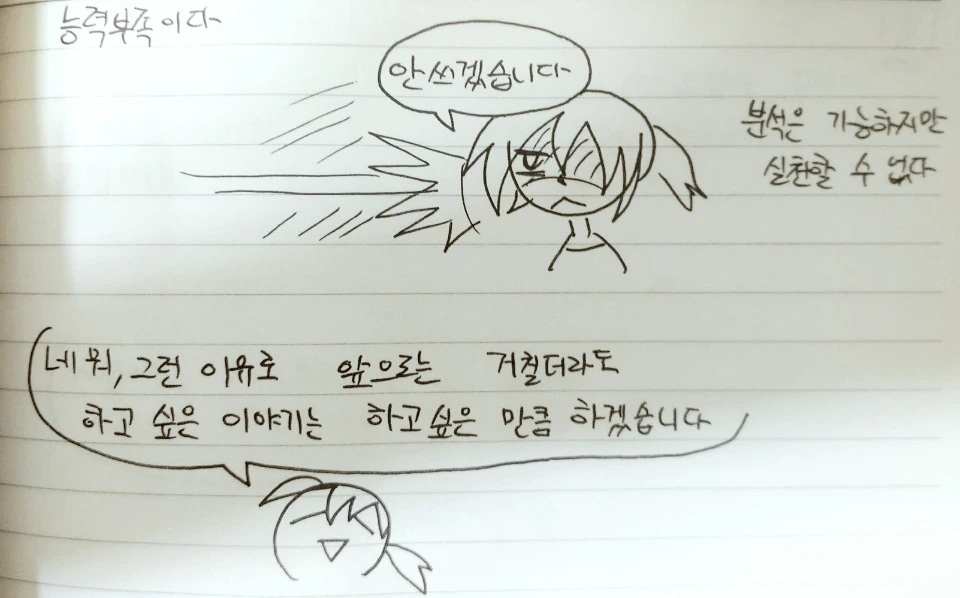 능력부족이다
안 쓰겠습니다
분석은 가능하지만
실천할 수 없다
네 뭐, 그런 이유로 앞으로는 거칠더라도
하고 싶은 이야기는 하고싶은 만큼 하겠습니다